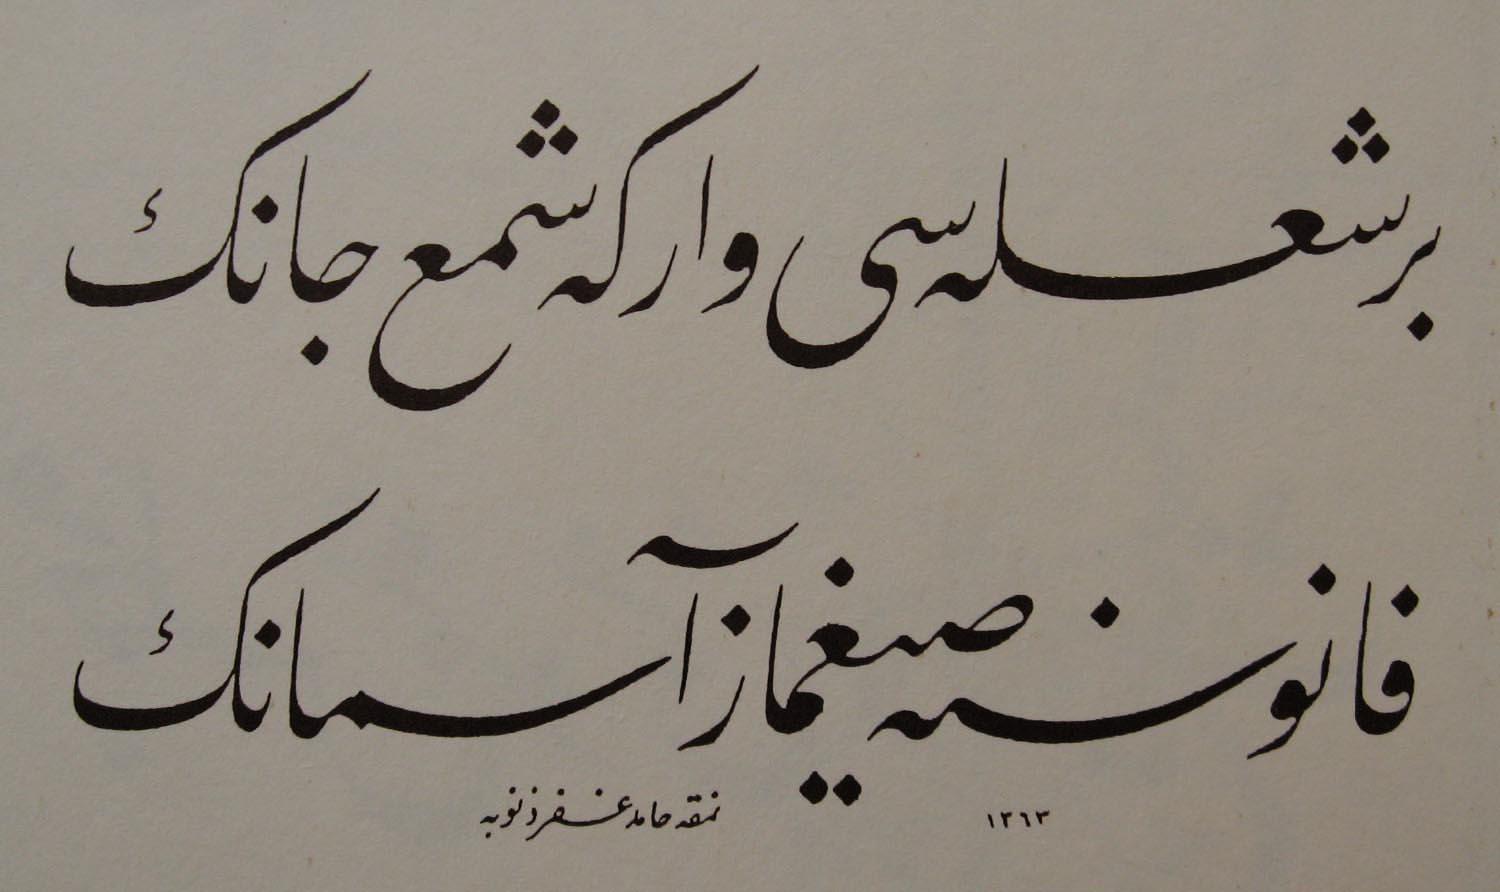 بر شعله‌سی وار که شمع جانك
فانوسنه صیغماز آسمانك
نمقه حامد غفر ذنوبه ١٣٦٣